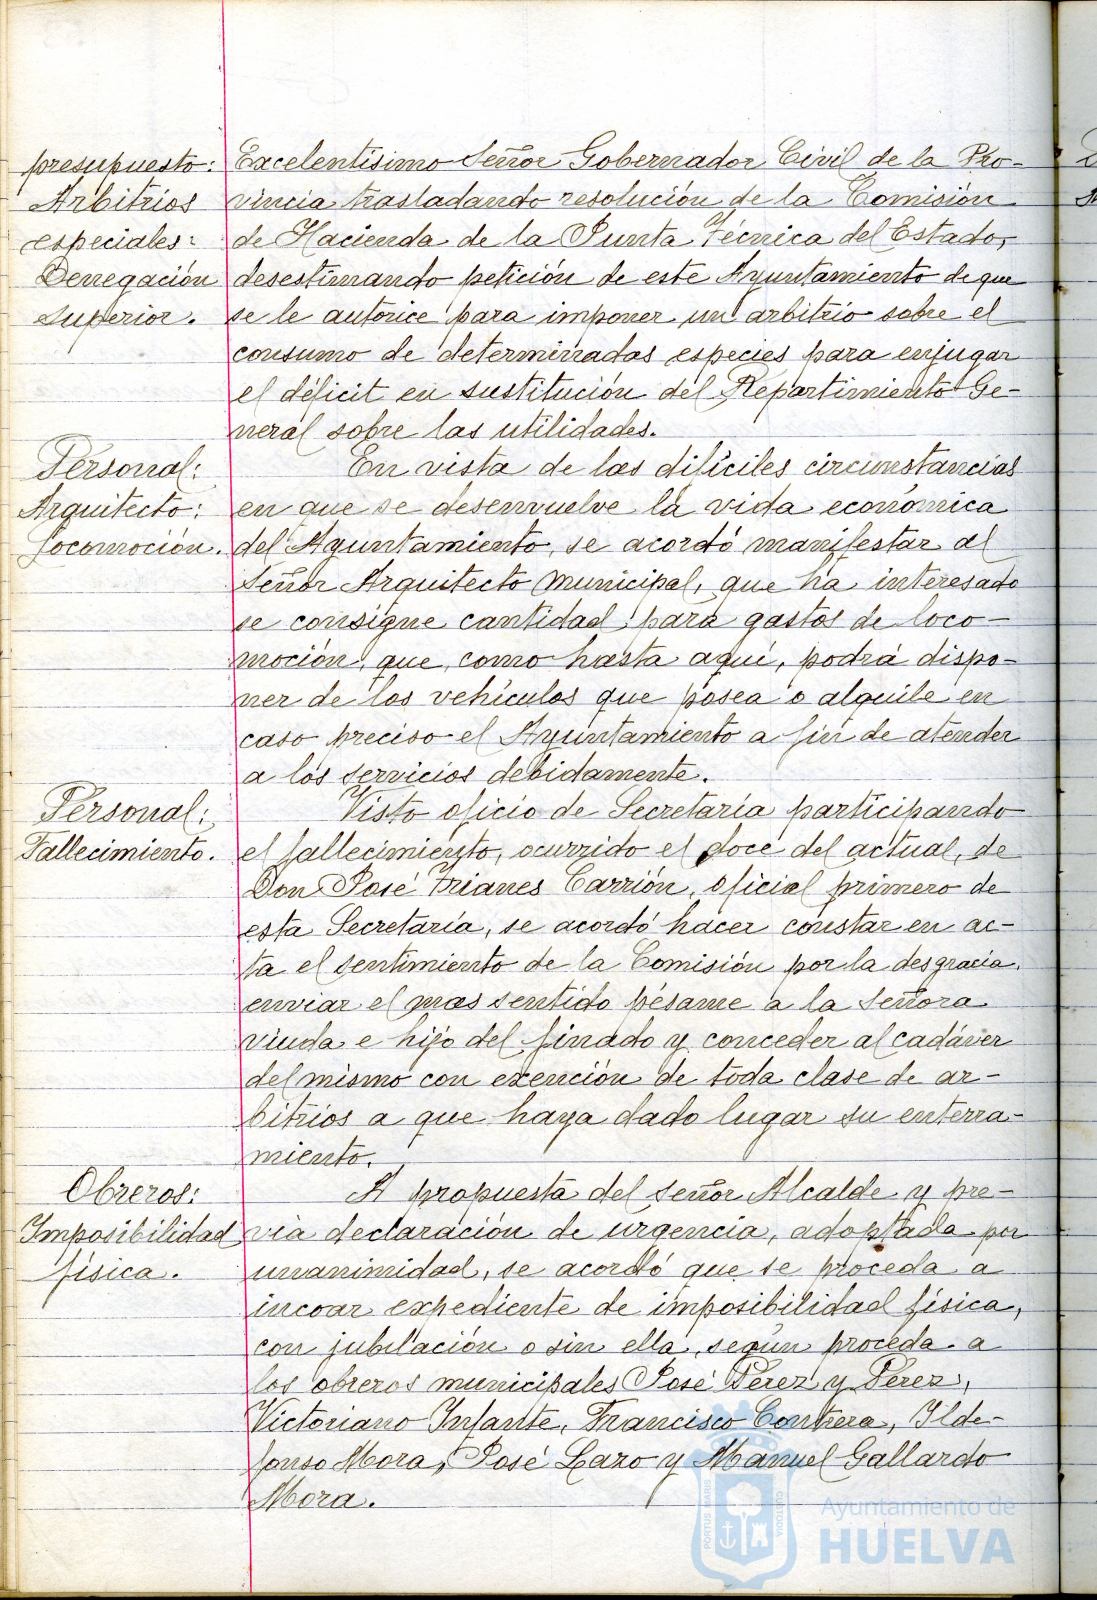 presupuesto:
Arbitrios
especiales:
Denegación
superior.
Excelentísimo Señor Gobernador Civil de la Pro-
vincia trasladando resolución de la Comisión
de Hacienda de la Junta Técnica del Estado,
desestimando petición de este Ayuntamiento de que
se le autorice para imponer un arbitrio sobre el
consumo de determinadas especies para enjugar
el déficit en sustitución del Repartimiento Ge-
neral sobre las utilidades.
Personal:
Arquitecto:
Locomoción.
En vista de las difíciles circunstancias
en que se desenvuelve la vida económica
del Ayuntamiento, se acordó manifestar al
Señor Arquitecto municipal, que ha interesado
se consigne cantidad para gastos de loco-
moción, que, como hasta aquí, podrá dispo-
ner de los vehículos que posea o alquile en
caso preciso el Ayuntamiento a fin de atender
a los servicios debidamente.
Personal:
Fallecimiento.
Visto oficio de Secretaría participando
el fallecimiento, ocurrido el doce del actual, de
Don José Trianes Carrión, oficial primero de
esta Secretaría, se acordó hacer constar en ac-
ta el sentimiento de la Comisión por la desgracia,
enviar el mas sentido pésame a la señora
viuda e hijo del finado y conceder al cadáver
del mismo con exención de toda clase de ar-
bitrios a que haya dado lugar su enterra-
miento.
Obreros:
Imposibilidad
física.
A propuesta del señor Alcalde y pre-
via declaración de urgencia, adoptada por
unanimidad, se acordó que se proceda a
incoar expediente de imposibilidad física,
con jubilación o sin ella, según proceda a
los obreros municipales José Pérez y Pérez,
Victoriano Infante, Francisco Contrera, Ilde-
fonso Mora, José Lazo y Manuel Gallardo
Mora.
PORTUS MARIS
CUSTODIA
Ayuntamiento de
HUELVA